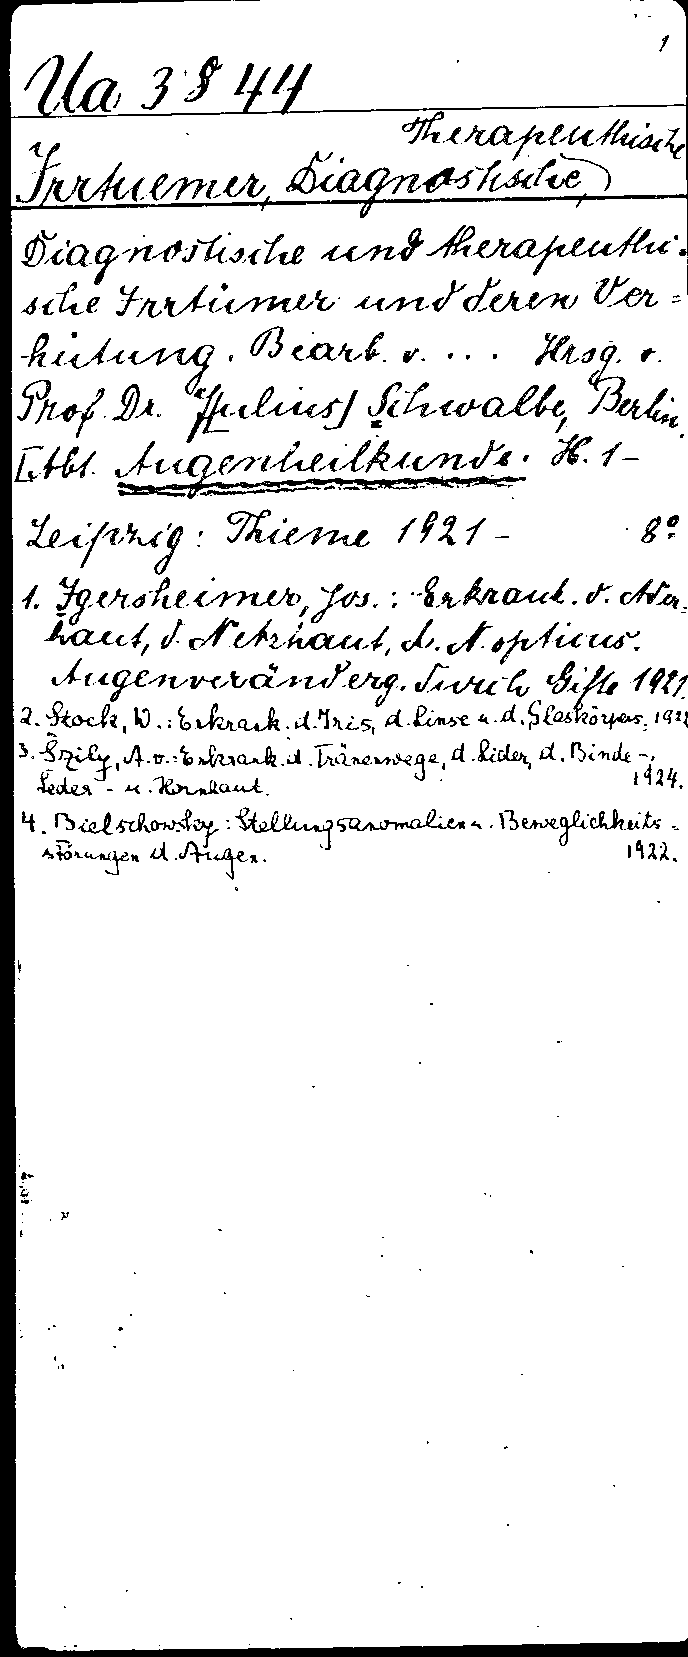 1
Ua 3844
Therapeuthische
Irrtuemer, Diagnostische,
Diagnostische und therapeuthi-
sche Irrtümer und deren Ver=
hütung. Bearb. v. ... Hrsg. v.
Prof. Dr. J[ulius] Schwalbe, Berlin.
I. Abt. Augenheilkunde. H. 1-
Leipzig: Thieme 1921- 8°
1. Igersheimer, Jos.: Erkrank. d. Ader=
haut, d. Netzhaut, d. N. opticus.
Augenveränderg. durch Gifte 1921.
2. Stock, W.: Erkrank. d. Iris, d. Linse u. d. Glaskörpers, 1922
3. Szily, A. v.: Erkrank. d. Tränenwege, d. Lider, d. Binde-,
Leder- u. Hornhaut. 1924.
4. Bielschowsky: Stellungsanomalien u. Beweglichkeits=
störungen d. Augen. 1922.